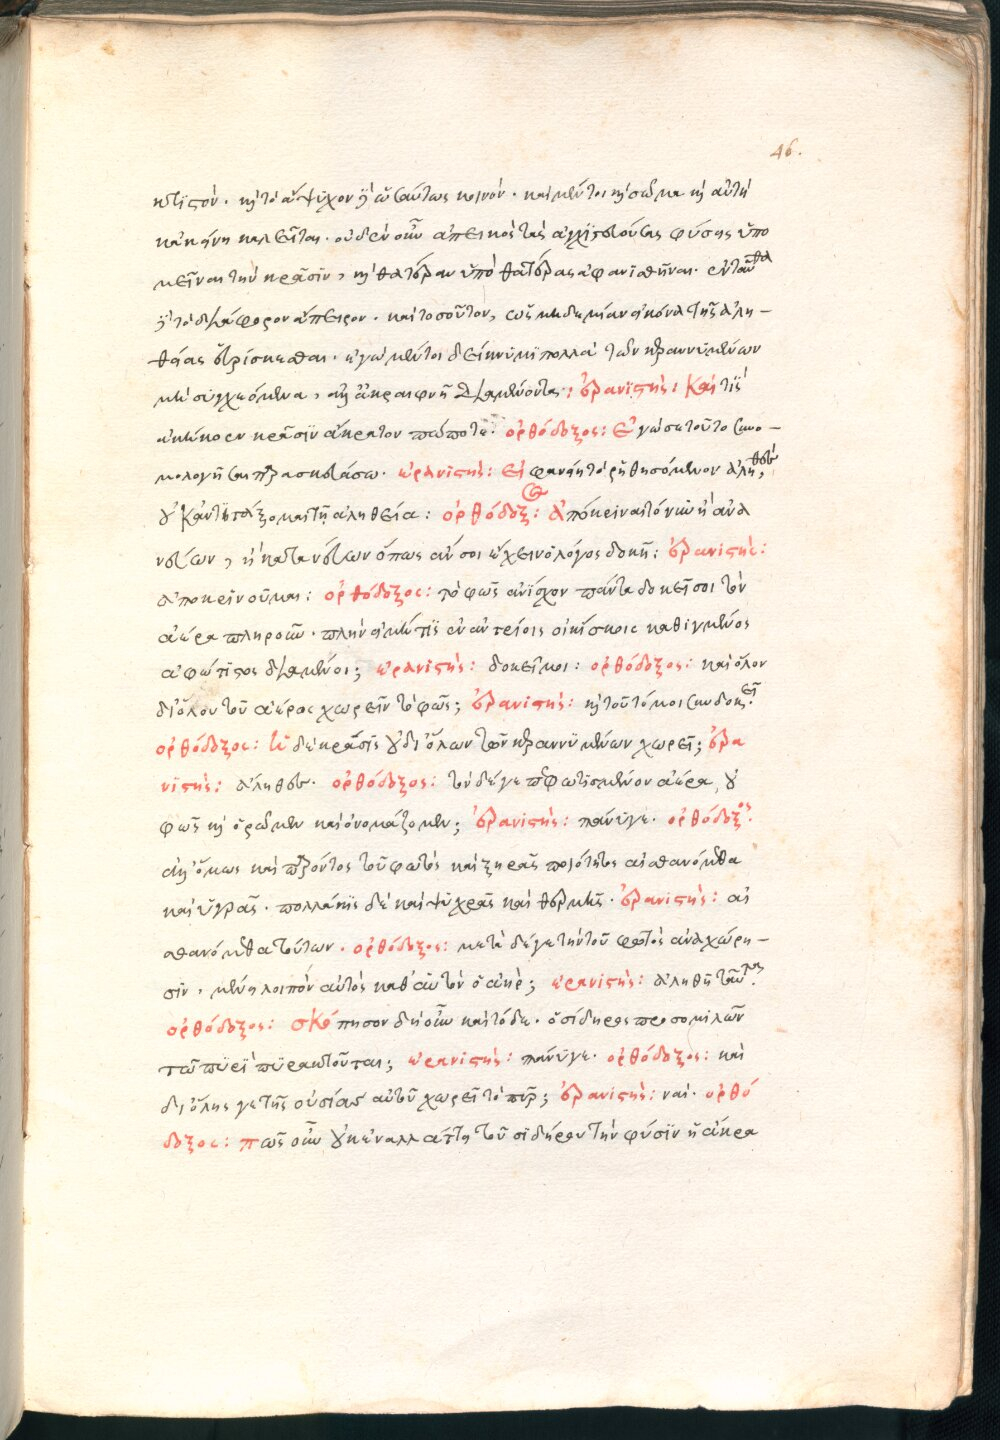 κτιστόν. καὶ τὸ ἄψυχον δὲ ὡσαύτως κοινόν. καὶ μέντοι καὶ σῶμα καὶ αὕτη
κἀκείνη καλεῖται. οὐδὲν οὖν ἀπεικὸς τὰς ἀγχιστευούσας φύσεις ὑπο
μεῖναι τὴν κρᾶσιν, καὶ θατέραν ὑπὸ θατέρας ἀφανισθῆναι. ἐνταῦθα
δὲ τὸ διάφορον ἄπειρον. καὶ τοσοῦτον, ὡς μηδεμίαν εἰκόνα τῆς ἀλη-
θείας εὑρίσκεσθαι. ἐγὼ μέντοι δείκνυμι πολλὰ τῶν κεραννυμένων
μὴ συγχεόμενα, ἀλλ' ἀκραιφνῆ διαμένοντα: ἐρανιστής: Καὶ τίς
ἀκήκοεν κρᾶσιν ἄκρατον πώποτε. ὀρθόδοξος: Ἐγώ σε τοῦτο συνο-
μολογῆσαι παρασκευάσω. ἐρανιστής: Εἰ φανείη τὸ ῥηθησόμενον ἀληθές,
οὐκ ἀντιτάξομαι τῇ ἀληθείᾳ: ὀρθόδοξος: Ἀπόκριναι τοίνυν ἢ ἀνα
νεύων, ἢ κατανεύων ὅπως ἄν σοι ἔχειν ὁ λόγος δοκῇ: ἐρανιστής:
ἀποκρινοῦμαι: ὀρθόδοξος: τὸ φῶς ἀνίσχον πάντα δοκεῖ σοι τὸν
ἀέρα πληροῦν. πλὴν εἰ μή τις ἐν ἄντροις οἰκίσκοις καθιγμένος
ἀφώτιστος διαμένοι; ἐρανιστής: δοκεῖ μοι: ὀρθόδοξος: καὶ ὅλον
δι' ὅλου τοῦ ἀέρος χωρεῖν τὸ φῶς; ἐρανιστής: καὶ τοῦτό μοι συνδοκεῖ.
ὀρθόδοξος: Ἡ δὲ κρᾶσις οὐ δι' ὅλων τῶν κεραννυμένων χωρεῖ; ἐρα
νιστής: ἀληθές. ὀρθόδοξος: τὸν δέ γε πεφωτισμένον ἀέρα, οὐ
φῶς καὶ ὁρῶμεν καὶ ὀνομάζομεν; ἐρανιστής: πάνυ γε. ὀρθόδοξος:
ἀλλ' ὅμως καὶ παρόντος τοῦ φωτὸς καὶ ξηρᾶς ποιότητος αἰσθανόμεθα
καὶ ὑγρᾶς. πολλάκις δὲ καὶ ψυχρᾶς καὶ θερμῆς. ἐρανιστής: αἰ
σθανόμεθα τούτων. ὀρθόδοξος: μετὰ δέ γε τὴν τοῦ φωτὸς ἀναχώρη-
σιν, μένει λοιπὸν αὐτὸς καθ' αὑτὸν ὁ ἀήρ; ἐρανιστής: ἀληθῆ ταῦτα.
ὀρθόδοξος: σκόπησον δὴ οὖν καὶ τόδε. ὁ σίδηρος προσομιλῶν
τῷ πυρὶ πυρακτοῦται; ἐρανιστής: πάνυ γε. ὀρθόδοξος: καὶ
δι' ὅλης γε τῆς οὐσίας αὐτοῦ χωρεῖ τὸ πῦρ; ἐρανιστής: ναί. ὀρθό
δοξος: πῶς οὖν οὐκ ἐναλλάττει τοῦ σιδήρου τὴν φύσιν ἡ ἄκρα